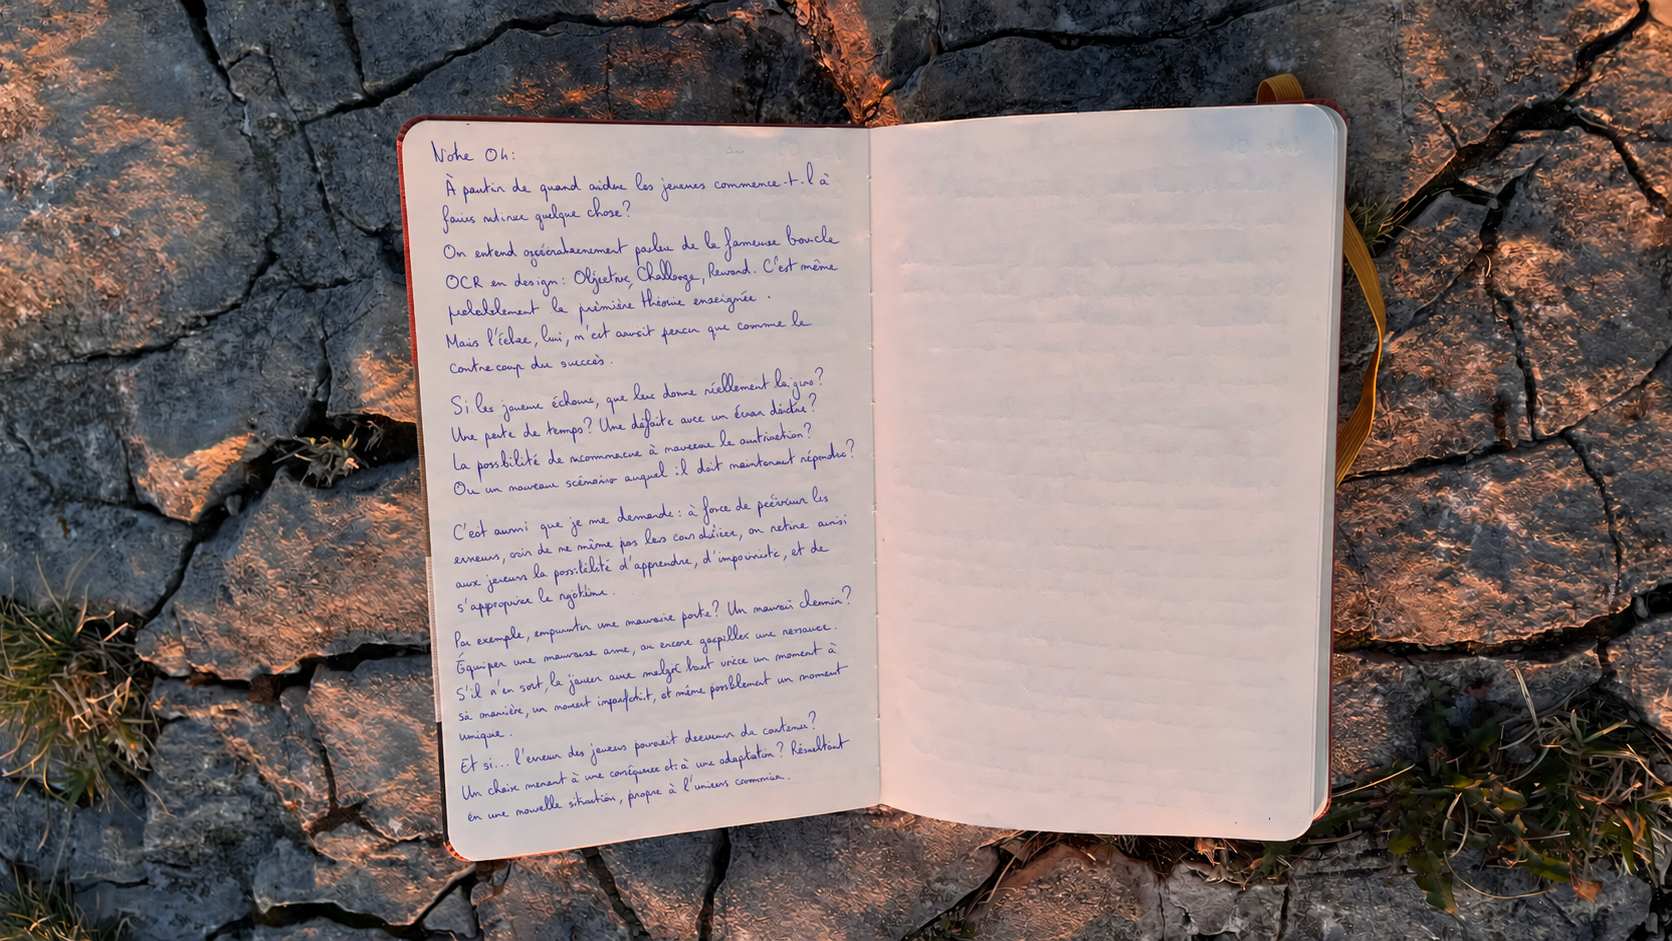 Note 04:
À partir de quand aider les joueurs commence-t-il à
faire retirer quelque chose?
On entend généralement parler de la fameuse boucle
OCR en design: Objective, Challenge, Reward. C'est même
probablement la première théorie enseignée.
Mais l'échec, lui, n'est aussi perçu que comme le
contrecoup du succès.
Si les joueurs échoue, que leur donne réellement le jeu?
Une perte de temps? Une défaite avec un écran dédié?
La possibilité de recommencer à nouveau le
Ou un nouveau scénario auquel il doit maintenant répondre?
C'est aussi que je me demande: à force de prévenir les
erreurs, voir de ne même pas les considérer, on retire aussi
aux joueurs la possibilité d'apprendre, d'improviste, et de
s'approprier le système.
Par exemple, emprunter une mauvaise porte? Un mauvais chemin?
Équiper une mauvaise arme, ou encore gaspiller une ressource.
S'il s'en sort, le joueur aura malgré tout vécu un moment à
sa manière, un moment imparfait, et même possiblement un moment
unique.
Et si... l'erreur des joueurs pouvait devenir du contenu?
Un choix menant à une conséquence et à une adaptation? Résultant
en une nouvelle situation, propre à l'univers commun.